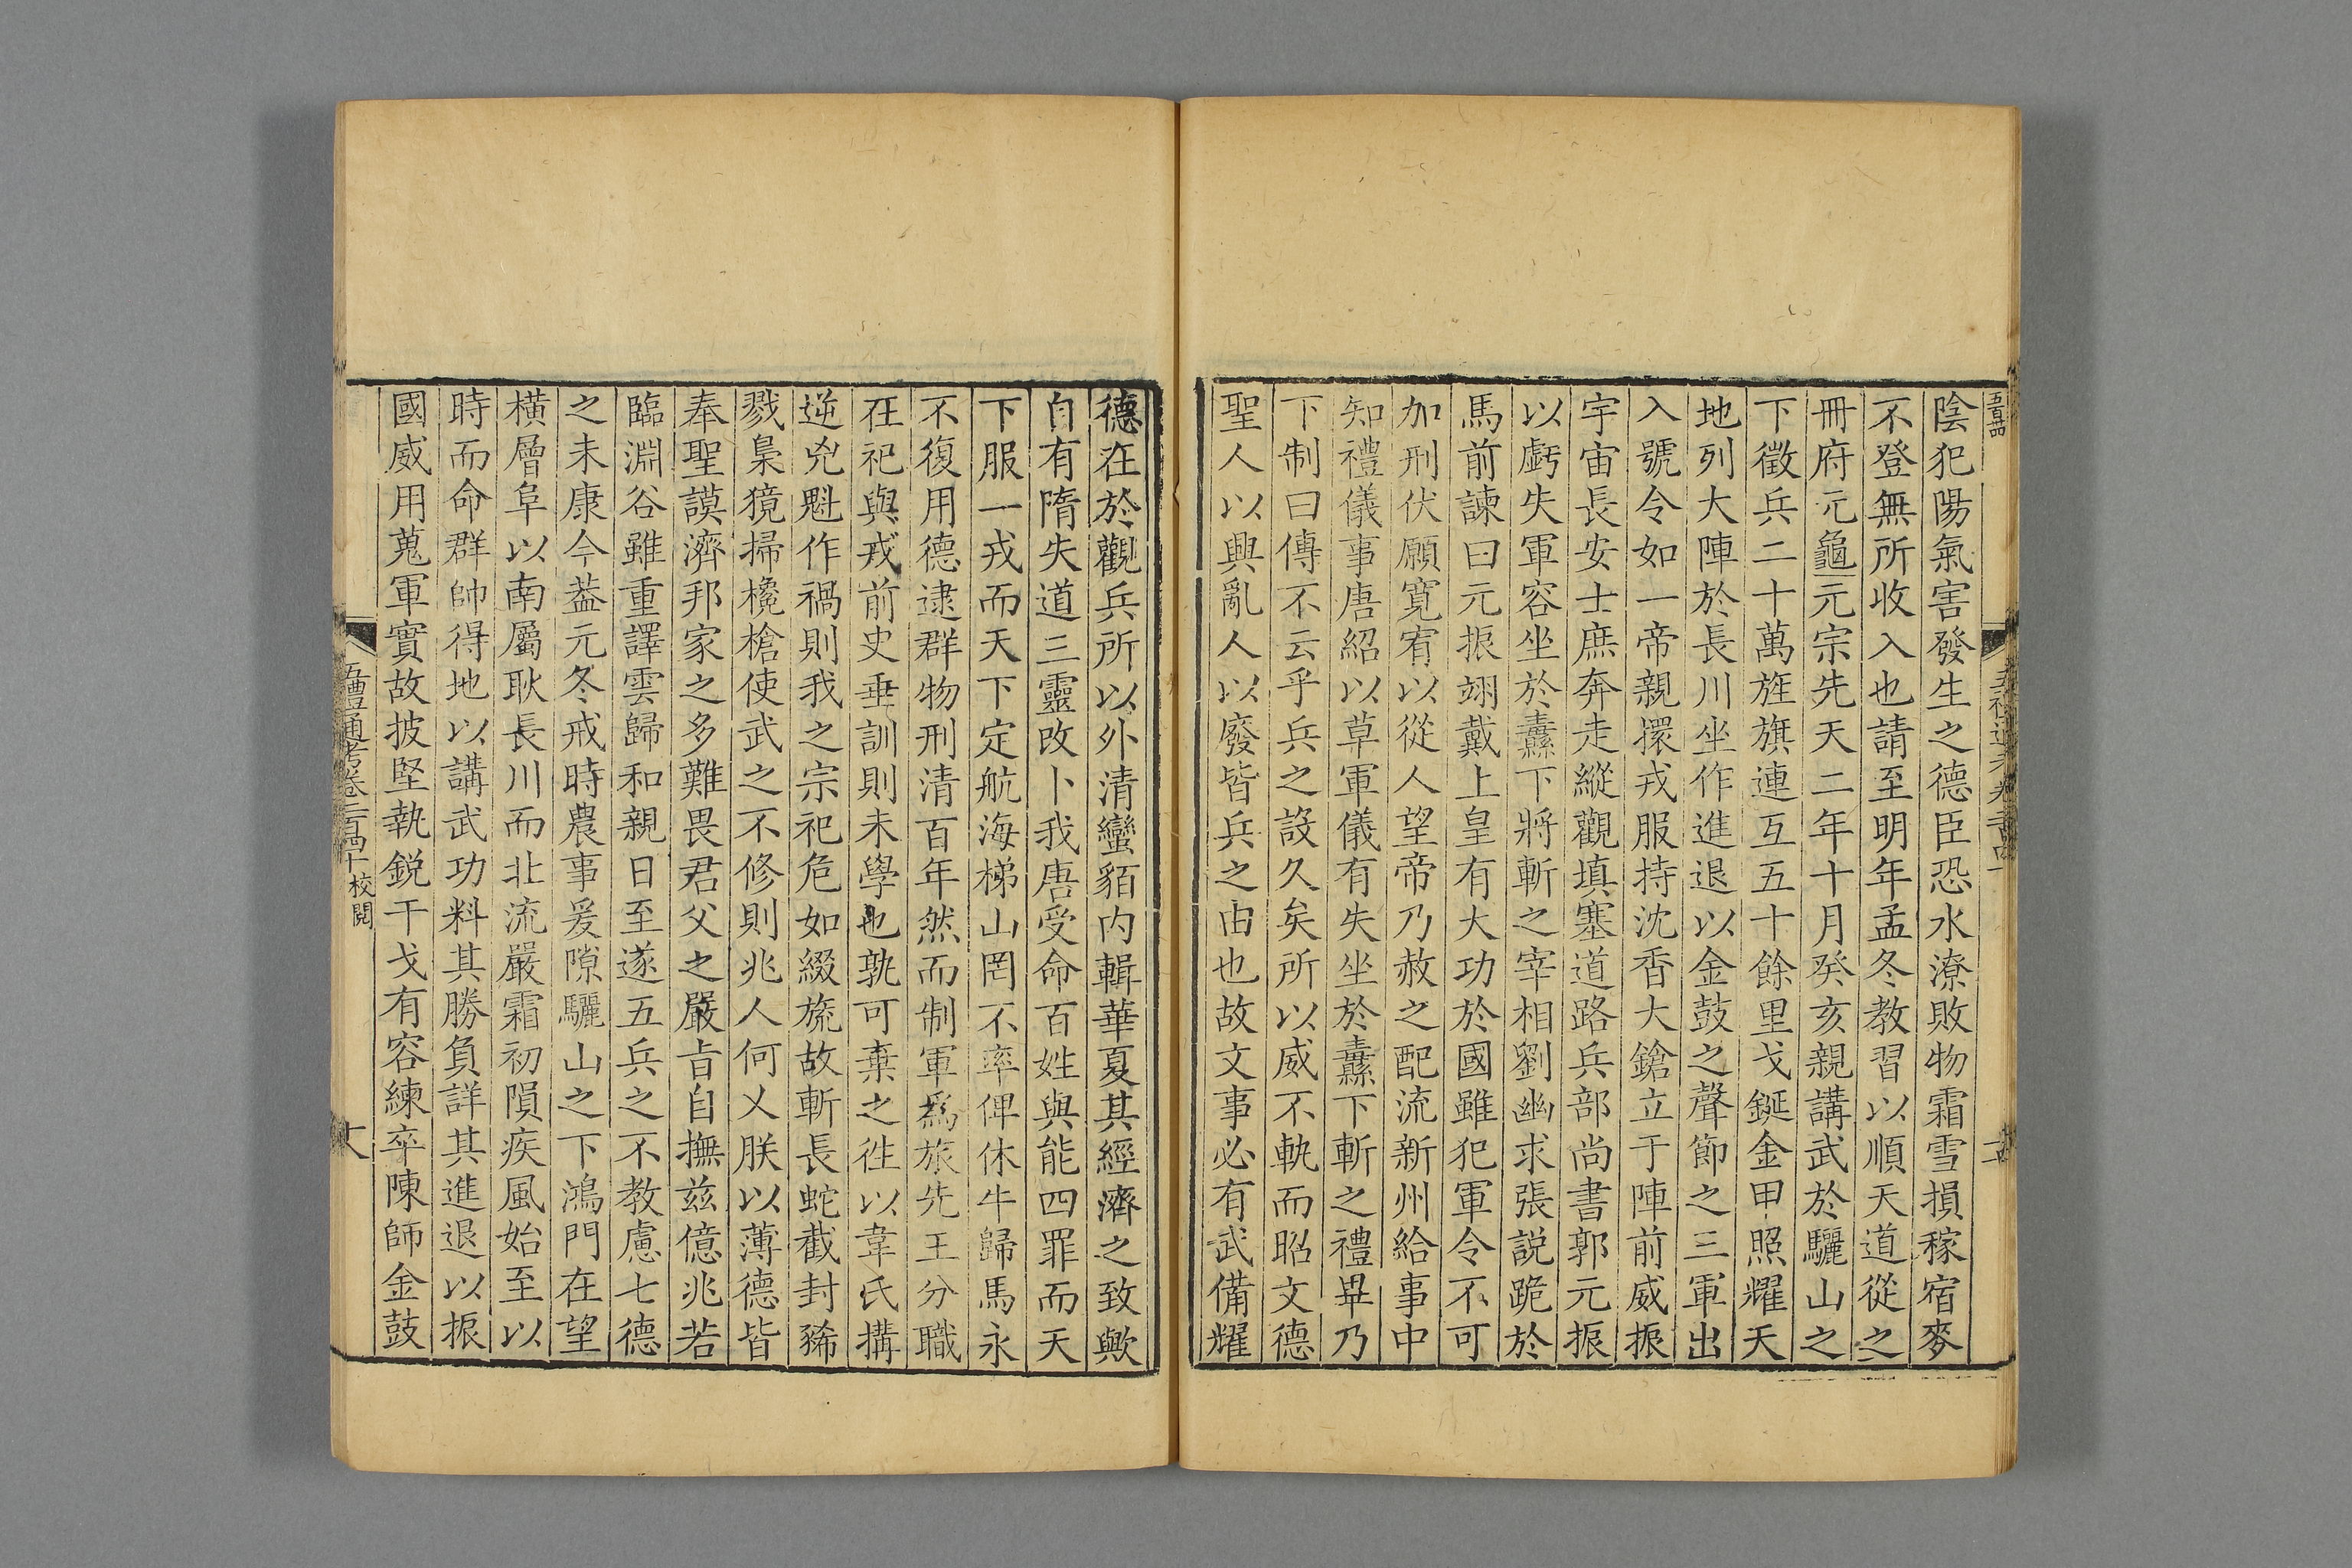 陰犯陽氣害發生之德臣恐水潦敗物霜雪損稼宿麥
不登無所收入也請至明年孟冬教習以順天道從之
冊府元龜元宗先天二年十月癸亥親講武於驪山之
下徵兵二十萬旌旗連互五十餘里戈鋋金甲照耀天
地列大陣於長川坐作進退以金鼓之聲節之三軍出
入號令如一帝親擐戎服持沈香大鎗立于陣前威振
宇宙長安士庶奔走縱觀填塞道路兵部尚書郭元振
以虧失軍容坐於纛下將斬之宰相劉幽求張説跪於
馬前諫曰元振翊戴上皇有大功於國雖犯軍令不可
加刑伏願寬宥以從人望帝乃赦之配流新州給事中
知禮儀事唐紹以草軍儀有失坐於纛下斬之禮畢乃
下制曰傳不云乎兵之設久矣所以威不軌而昭文德
聖人以興亂人以廢皆兵之由也故文事必有武備耀
德在於觀兵所以外清蠻貊内輯華夏其經濟之致歟
自有隋失道三靈改卜我唐受命百姓與能四罪而天
下服一戎而天下定航海梯山罔不率俾休牛歸馬永
不復用德逮群物刑清百年然而制軍爲旅先王分職
在祀與戎前史垂訓則未學也孰可棄之徃以韋氏搆
逆兇魁作禍則我之宗祀危如綴旒故斬長蛇截封豨
戮梟獍掃欃槍使武之不修則兆人何乂朕以薄德皆
奉聖謨濟邦家之多難畏君父之嚴旨自撫兹億兆若
臨淵谷雖重譯雲歸和親日至遂五兵之不教慮七德
之未康今葢元冬戒時農事爰隙驪山之下鴻門在望
橫層阜以南屬耿長川而北流嚴霜初隕疾風始至以
時而命群帥得地以講武功料其勝負詳其進退以振
國威用蒐軍實故披堅執鋭干戈有容練卒陳師金鼓
五禮通考卷二百四十 校閱